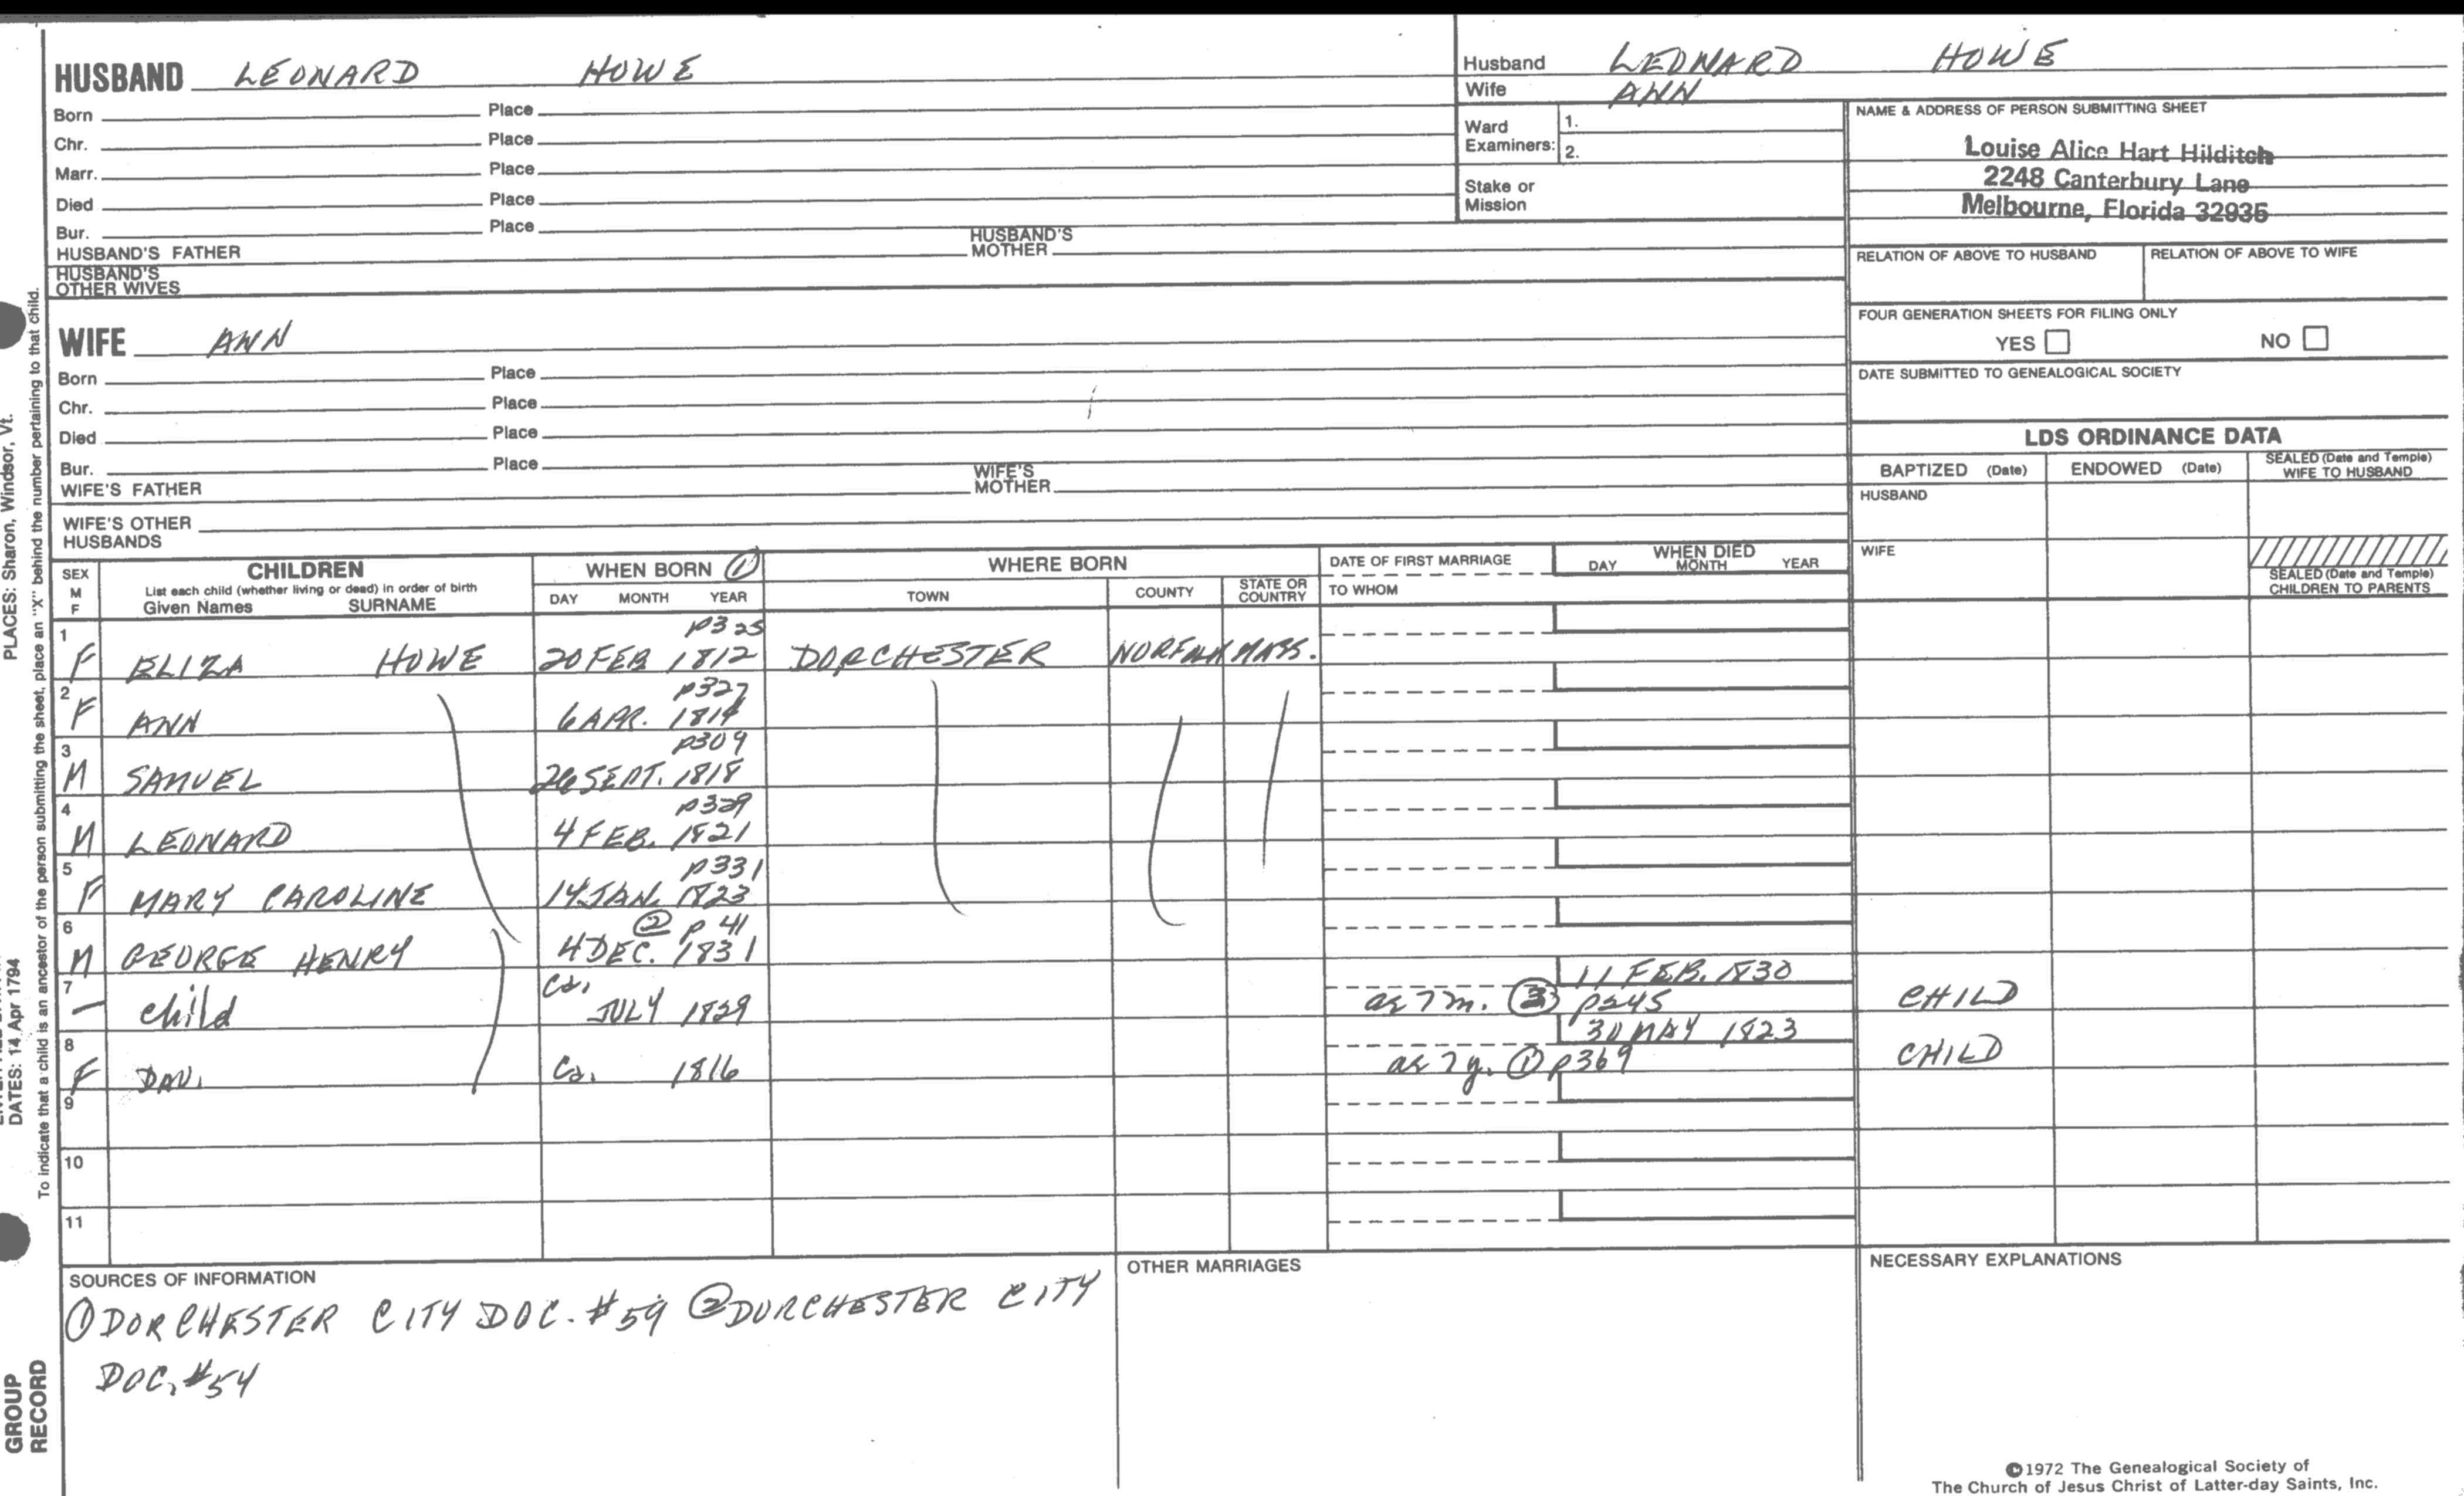 HUSBAND LEONARD HOWE
Born Place
Chr. Place
Marr. Place
Died Place
Bur. Place
HUSBAND'S FATHER HUSBAND'S MOTHER
HUSBAND'S OTHER WIVES
Husband LEONARD HOWE
Wife ANN
Ward Examiners: 1.
2.
Stake or Mission
NAME & ADDRESS OF PERSON SUBMITTING SHEET
Louise Alice Hart Hilditch
2248 Canterbury Lane
Melbourne, Florida 32935
RELATION OF ABOVE TO HUSBAND RELATION OF ABOVE TO WIFE
FOUR GENERATION SHEETS FOR FILING ONLY
YES NO
DATE SUBMITTED TO GENEALOGICAL SOCIETY
WIFE ANN
Born Place
Chr. Place
Died Place
Bur. Place
WIFE'S FATHER WIFE'S MOTHER
WIFE'S OTHER HUSBANDS
LDS ORDINANCE DATA
BAPTIZED (Date) ENDOWED (Date) SEALED (Date and Temple) WIFE TO HUSBAND
HUSBAND
WIFE
SEALED (Date and Temple) CHILDREN TO PARENTS
SEX M F
CHILDREN
List each child (whether living or dead) in order of birth
Given Names SURNAME
WHEN BORN ①
DAY MONTH YEAR
WHERE BORN
TOWN COUNTY STATE OR COUNTRY
DATE OF FIRST MARRIAGE
TO WHOM
WHEN DIED
DAY MONTH YEAR
1 p325
F ELIZA HOWE 20 FEB 1812 DORCHESTER NORFOLK MASS.
2 p327
F ANN 6 APR. 1814
3 p309
M SAMUEL 26 SEPT. 1818
4 p329
M LEONARD 4 FEB. 1821
5 p331
F MARY CAROLINE 14 JAN. 1823
6 ② p 41
M GEORGE HENRY 4 DEC. 1831
7 Ca. 11 FEB. 1830
- child JULY 1829 as 7 m. ③ p245 CHILD
8 30 MAY 1823
F DAU. Ca. 1816 as 7 y. ① p369 CHILD
9
10
11
SOURCES OF INFORMATION
① DORCHESTER CITY DOC. #59 ② DORCHESTER CITY
DOC. #54
OTHER MARRIAGES
NECESSARY EXPLANATIONS
©1972 The Genealogical Society of
The Church of Jesus Christ of Latter-day Saints, Inc.
PLACES: Sharon, Windsor, Vt.
DATES: 14 Apr 1794
To indicate that a child is an ancestor of the person submitting the sheet, place an "X" behind the number pertaining to that child.
GROUP
RECORD